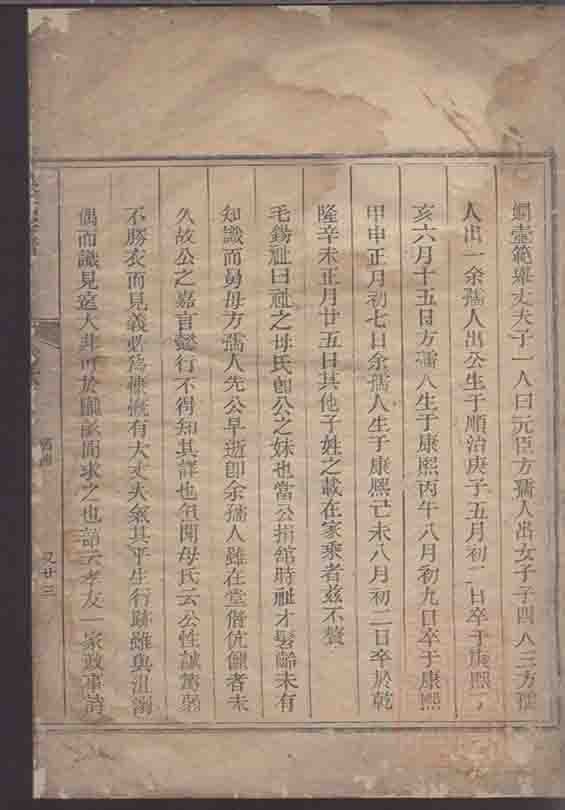 嫺壼範舉丈夫子一人曰元臣方孺人出女子子四人三方孺
人出一余孺人出公生于順治庚子五月初二日卒于康熙
亥六月十五日方孺人生于康熙丙午八月初九日卒于康熙
甲申正月初七日余孺人生于康熙己未八月初二日卒於乾
隆辛未正月廿五日其他子姓之載在家乘者茲不贅
毛錫祉曰祉之母氏卽公之妹也當公捐舘時祉才髫齡未有
知識而舅母方孺人先公早逝卽余孺人雖在堂偕伉儷者未
久故公之嘉言懿行不得知其詳也但聞母氏云公性誠篤弱
不勝衣而見義必為慷慨有大丈夫氣其平生行跡雖與沮溺
偶而識見遠大非可於隴畝間求之也語云孝友一家政事詩
又廿三